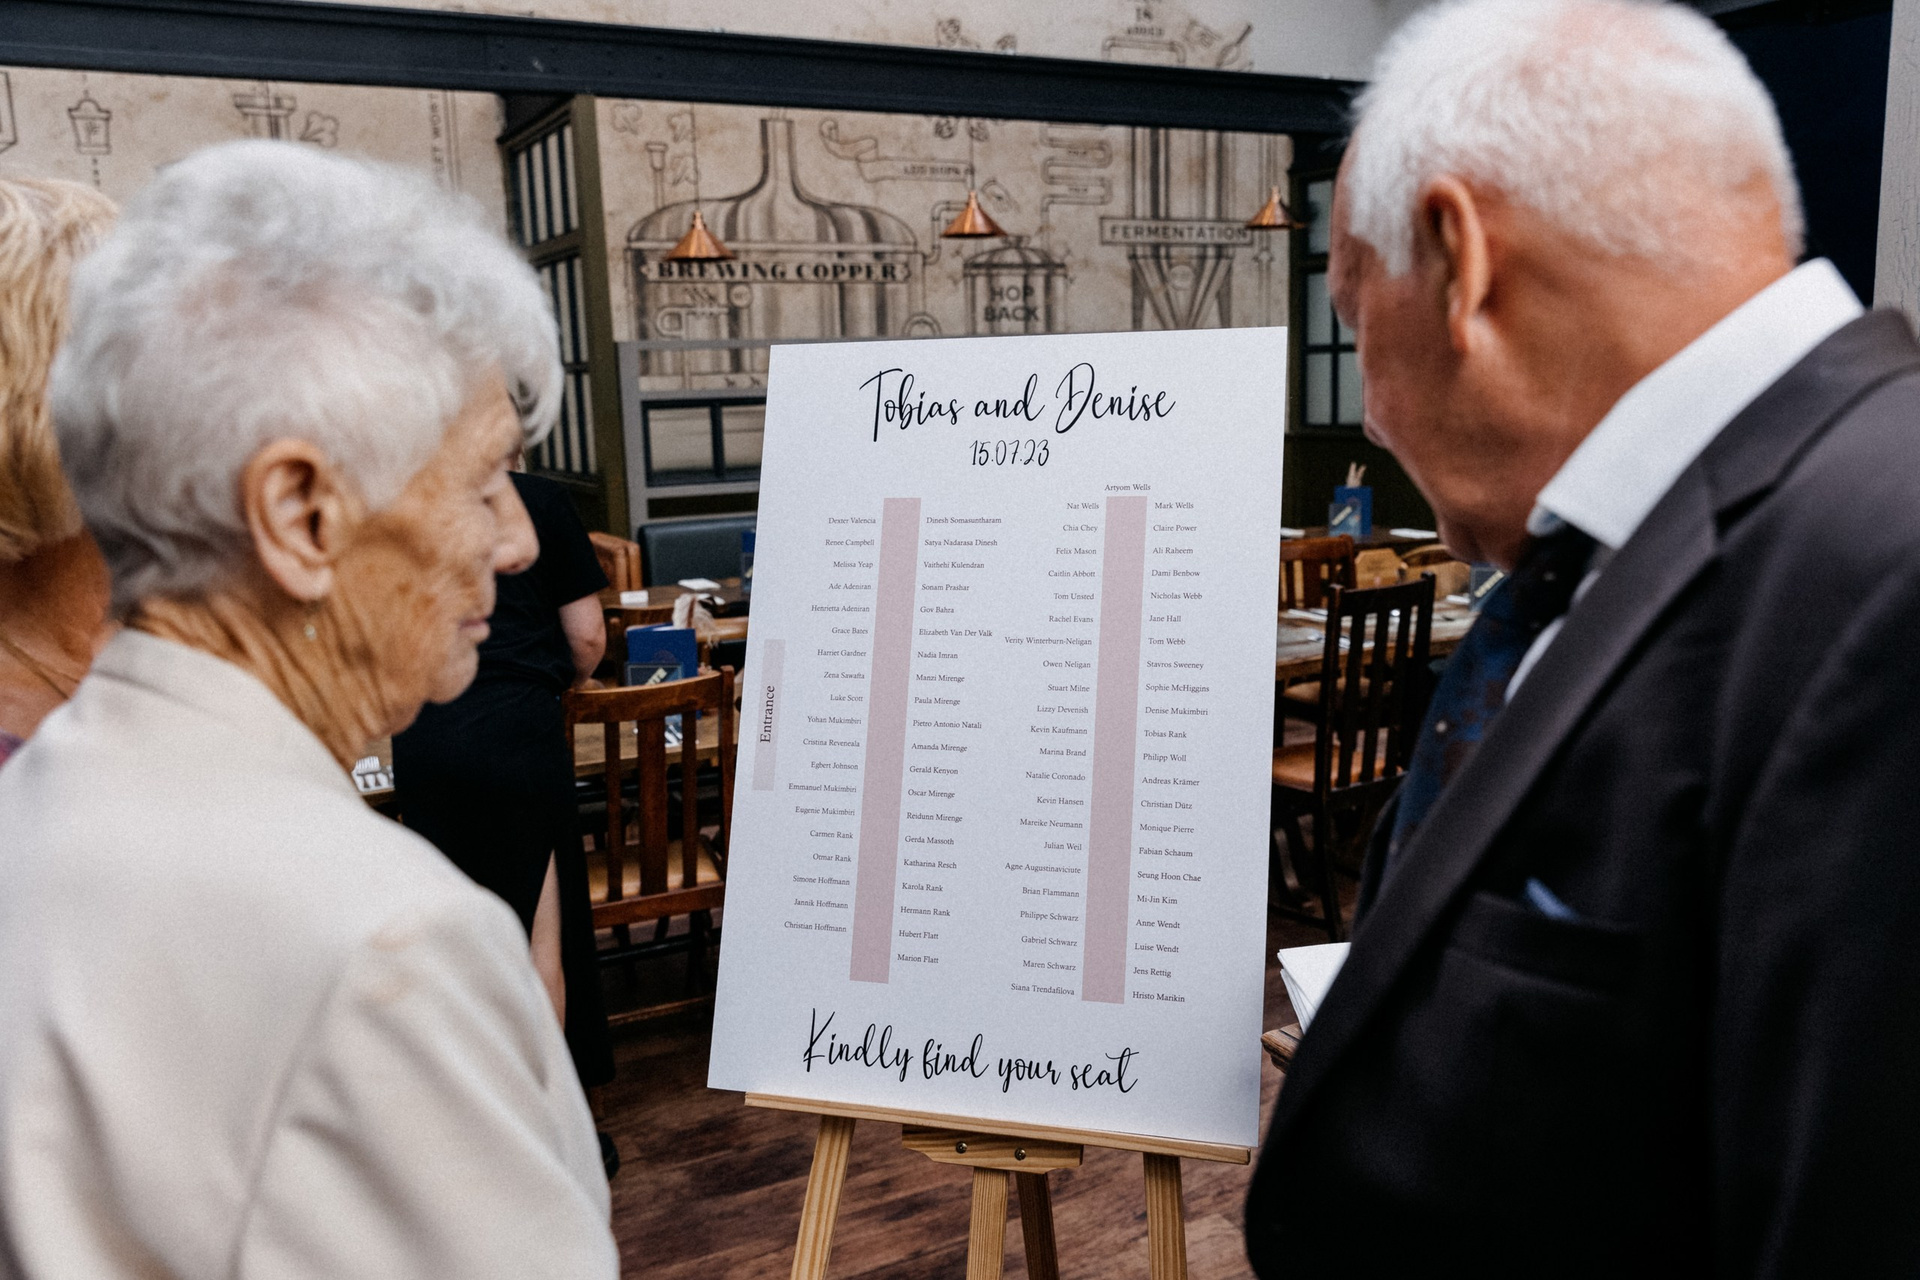 BREWING COPPER
HOP
BACK
FERMENTATION
Tobias and Denise
15.07.23
Entrance
Dexter Valencia
Renee Campbell
Melissa Yeap
Ade Adeniran
Henrietta Adeniran
Grace Bates
Harriet Gardner
Zena Sawafta
Luke Scott
Yohan Mukimbiri
Cristina Reveneala
Egbert Johnson
Emmanuel Mukimbiri
Eugenie Mukimbiri
Carmen Rank
Otmar Rank
Simone Hoffmann
Jannik Hoffmann
Christian Hoffmann
Dinesh Somasuntharam
Satya Nadarasa Dinesh
Vaithehi Kulendran
Sonam Prashar
Gov Bahra
Elizabeth Van Der Valk
Nadia Imran
Manzi Mirenge
Paula Mirenge
Pietro Antonio Natali
Amanda Mirenge
Gerald Kenyon
Oscar Mirenge
Reidunn Mirenge
Gerda Massoth
Katharina Resch
Karola Rank
Hermann Rank
Hubert Flatt
Marion Flatt
Artyom Wells
Nat Wells
Chia Chey
Felix Mason
Caitlin Abbott
Tom Unsted
Rachel Evans
Verity Winterburn-Neligan
Owen Neligan
Stuart Milne
Lizzy Devenish
Kevin Kaufmann
Marina Brand
Natalie Coronado
Kevin Hansen
Mareike Neumann
Julian Weil
Agne Augustinaviciute
Brian Flammann
Philippe Schwarz
Gabriel Schwarz
Maren Schwarz
Siana Trendafilova
Mark Wells
Claire Power
Ali Raheem
Dami Benbow
Nicholas Webb
Jane Hall
Tom Webb
Stavros Sweeney
Sophie McHiggins
Denise Mukimbiri
Tobias Rank
Philipp Woll
Andreas Krämer
Christian Dütz
Monique Pierre
Fabian Schaum
Seung Hoon Chae
Mi-Jin Kim
Anne Wendt
Luise Wendt
Jens Rettig
Hristo Marikin
Kindly find your seat